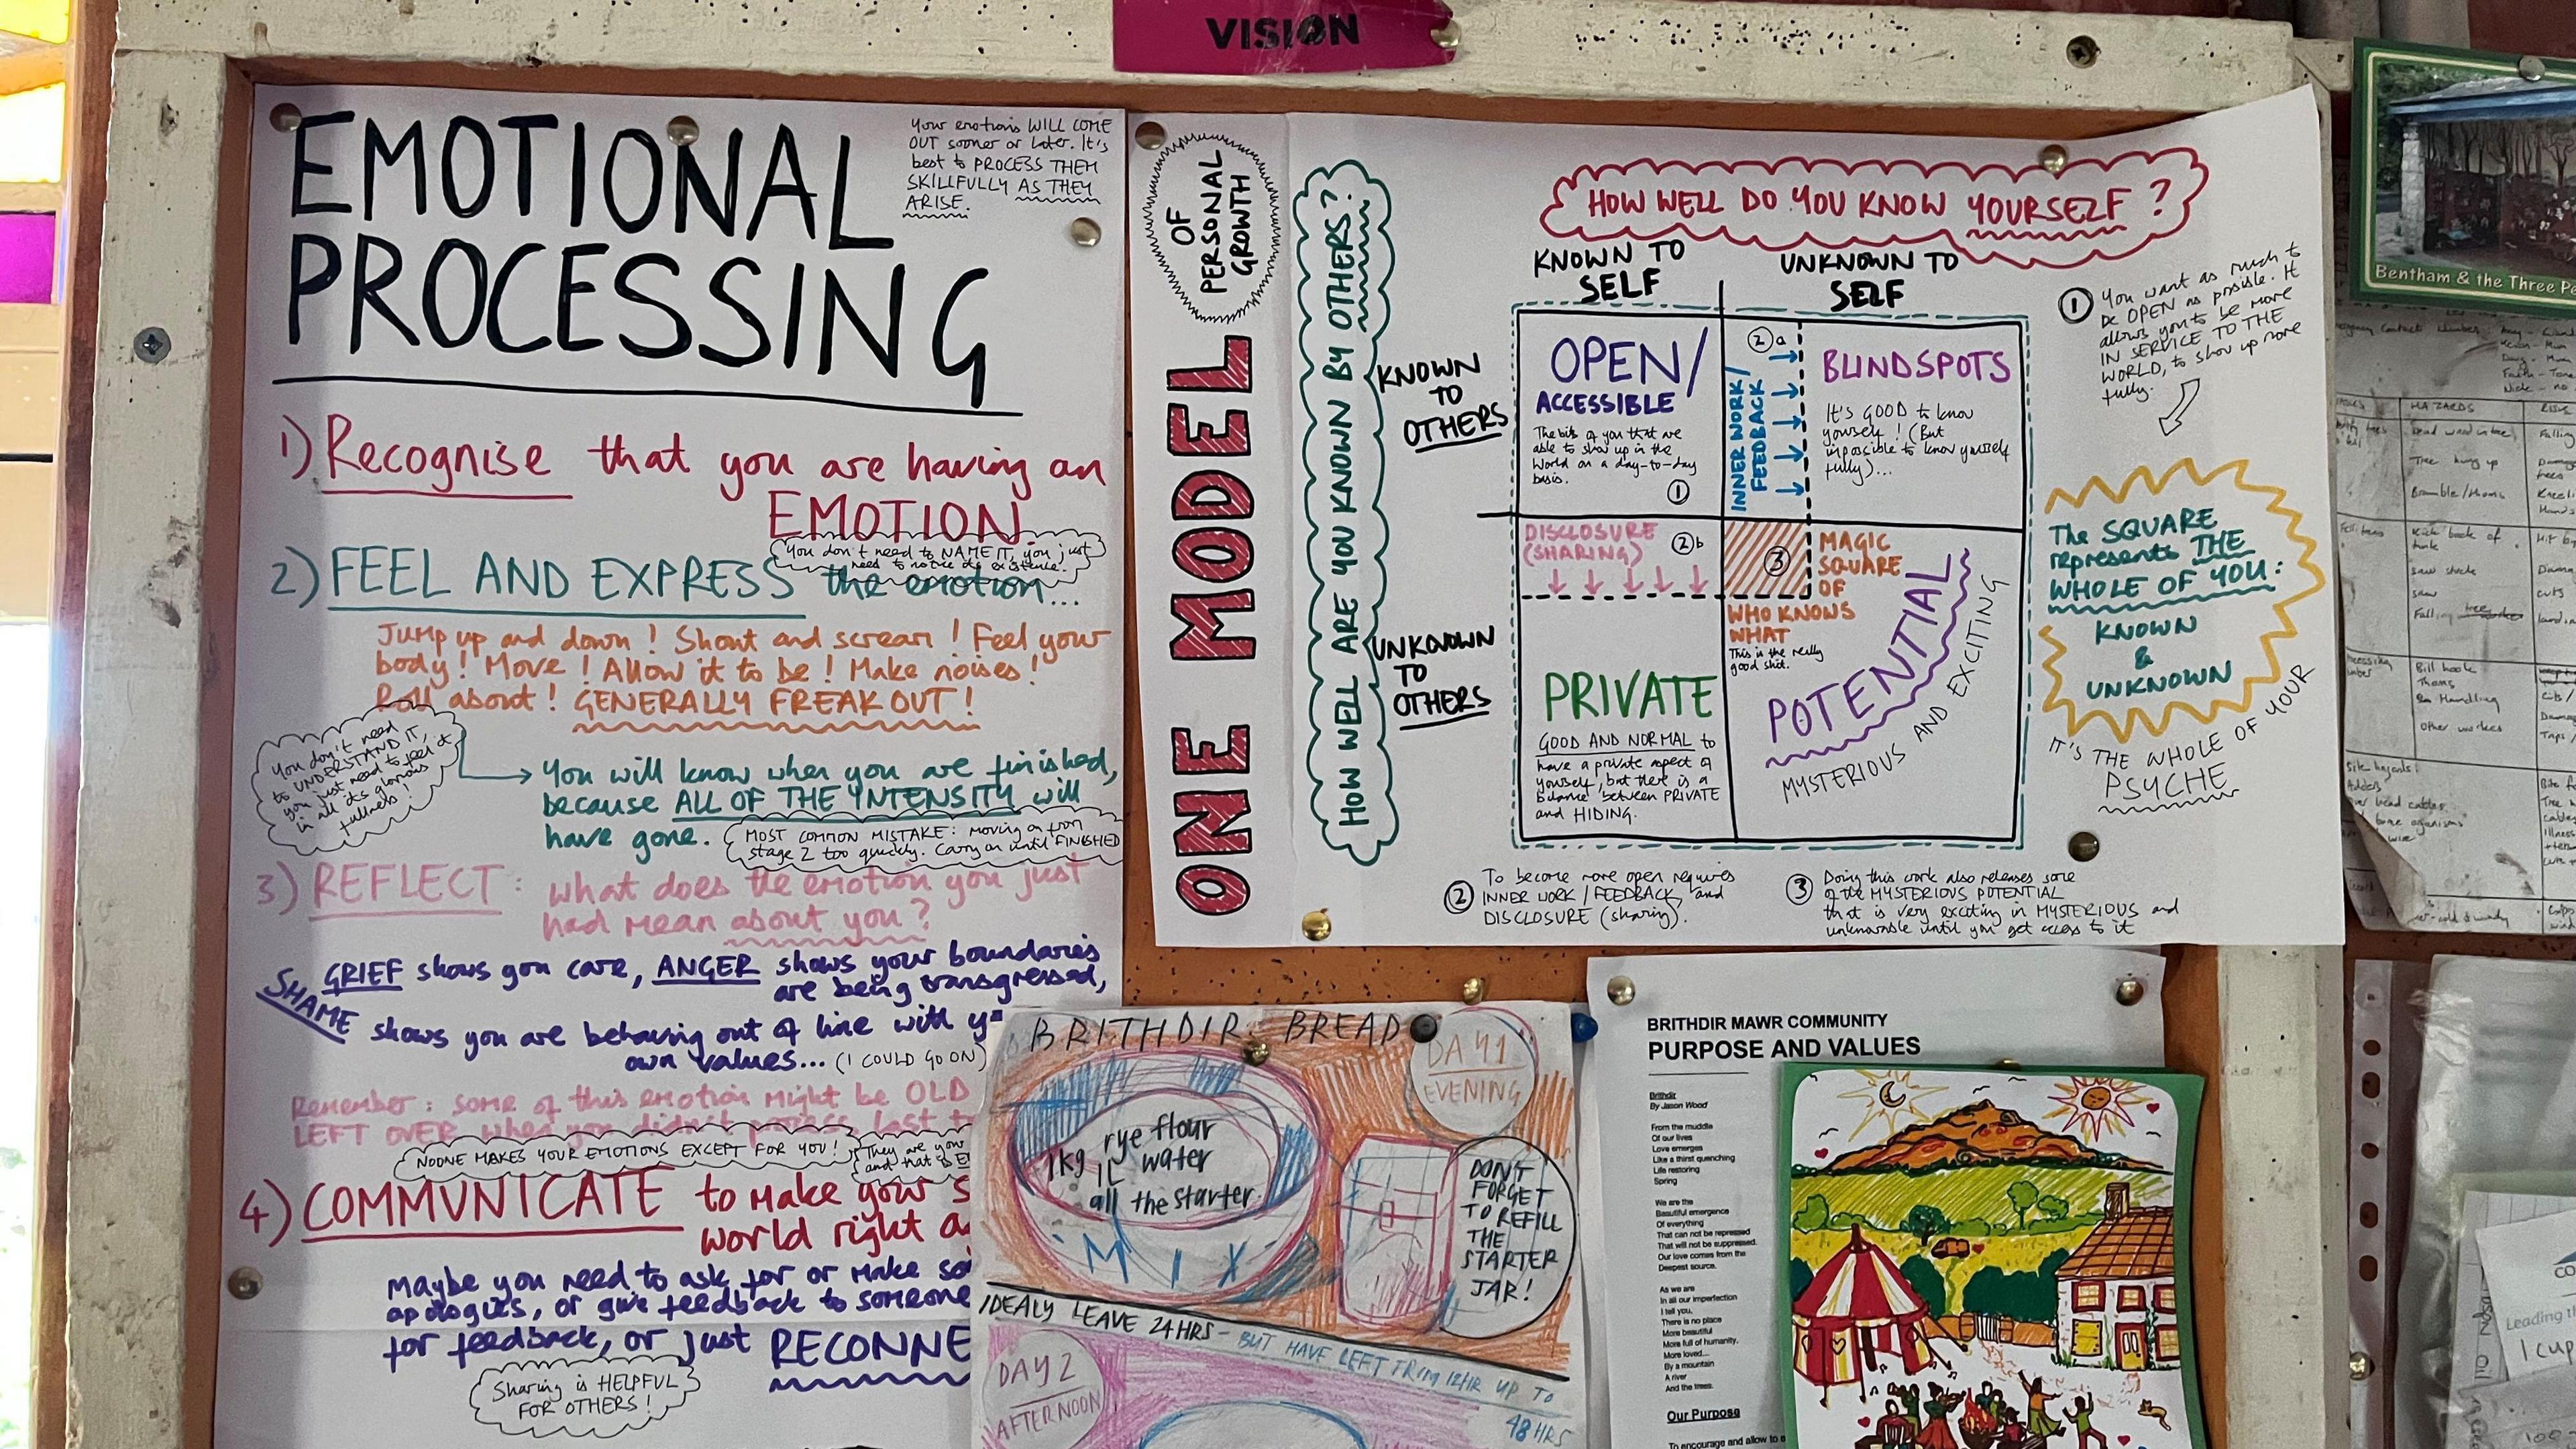 VISION
EMOTIONAL
PROCESSING
Your emotions WILL COME
OUT sooner or later. It's
best to PROCESS THEM
SKILLFULLY AS THEY
ARISE.
1) Recognise that you are having an
EMOTION.
You don't need to NAME IT, you just
need to notice its existence.
2) FEEL AND EXPRESS the emotion...
Jump up and down! Shout and scream! Feel your
body! Move! Allow it to be! Make noises!
Roll about! GENERALLY FREAK OUT!
You don't need
to UNDERSTAND IT,
you just need to feel it
in all its glorious
fullness!
You will know when you are finished,
because ALL OF THE INTENSITY will
have gone.
MOST COMMON MISTAKE: moving on from
stage 2 too quickly. Carry on until FINISHED
3) REFLECT: What does the emotion you just
had mean about you?
GRIEF shows you care, ANGER shows your boundaries
are being transgressed,
SHAME shows you are behaving out of line with
own values... (I COULD GO ON)
Remember: some of this emotion might be OLD
LEFT OVER when you didn't process last
NOONE MAKES YOUR EMOTIONS EXCEPT FOR YOU!
They are your
and that is
4) COMMUNICATE to make your
world right
Maybe you need to ask for or make
apologies, or give feedback to someone
for feedback, or just RECONNE
Sharing is HELPFUL
FOR OTHERS!
ONE MODEL
OF
PERSONAL
GROWTH
HOW WELL ARE YOU KNOWN BY OTHERS?
HOW WELL DO YOU KNOW YOURSELF?
KNOWN TO
SELF
UNKNOWN TO
SELF
KNOWN
TO
OTHERS
UNKNOWN
TO
OTHERS
OPEN/
ACCESSIBLE
The bits of you that are
able to show up in the
World on a day-to-day
basis.
1
2a
INNER WORK/
FEEDBACK
BLINDSPOTS
It's GOOD to know
yourself! (But
impossible to know yourself
fully)...
DISCLOSURE
(SHARING)
2b
3
MAGIC
SQUARE
OF
WHO KNOWS
WHAT
This is the really
good shit.
PRIVATE
GOOD AND NORMAL to
have a private aspect of
yourself, but there is a
balance between PRIVATE
and HIDING.
POTENTIAL
MYSTERIOUS AND EXCITING
1 You want as much to
be OPEN as possible. It
allows you to be more
IN SERVICE TO THE
WORLD, to show up more
fully.
The SQUARE
represents THE
WHOLE OF YOU:
KNOWN
&
UNKNOWN
IT'S THE WHOLE OF YOUR
PSYCHE
2 To become more open requires
INNER WORK/FEEDBACK, and
DISCLOSURE (sharing).
3 Doing this work also releases some
of the MYSTERIOUS POTENTIAL
that is very exciting in MYSTERIOUS and
unknowable until you get access to it
BRITHDIR BREAD
DAY 1
EVENING
1kg rye flour
1L water
all the starter
MIX
DON'T
FORGET
TO REFILL
THE
STARTER
JAR!
IDEALY LEAVE 24HRS - BUT HAVE LEFT FRIM 12HR UP TO
48HRS
DAY 2
AFTERNOON
BRITHDIR MAWR COMMUNITY
PURPOSE AND VALUES
Brithdir
By Jason Wood
From the muddle
Of our lives
Love emerges
Like a thirst quenching
Life restoring
Spring
We are the
Beautiful emergence
Of everything
That can not be repressed
That will not be suppressed.
Our love comes from the
Deepest source.
As we are
In all our imperfection
I tell you,
There is no place
More beautiful
More full of humanity,
More loved...
By a mountain
A river
And the trees.
Our Purpose
To encourage and allow to
Bentham & the Three
HAZARDS
Dead wood in tree
Tree hung up
Bramble/thorns
Kick back of
Falling tree
Bill hook
Thorns
Handling
Other workers
Site hazards:
Adders
Leading
1 cup